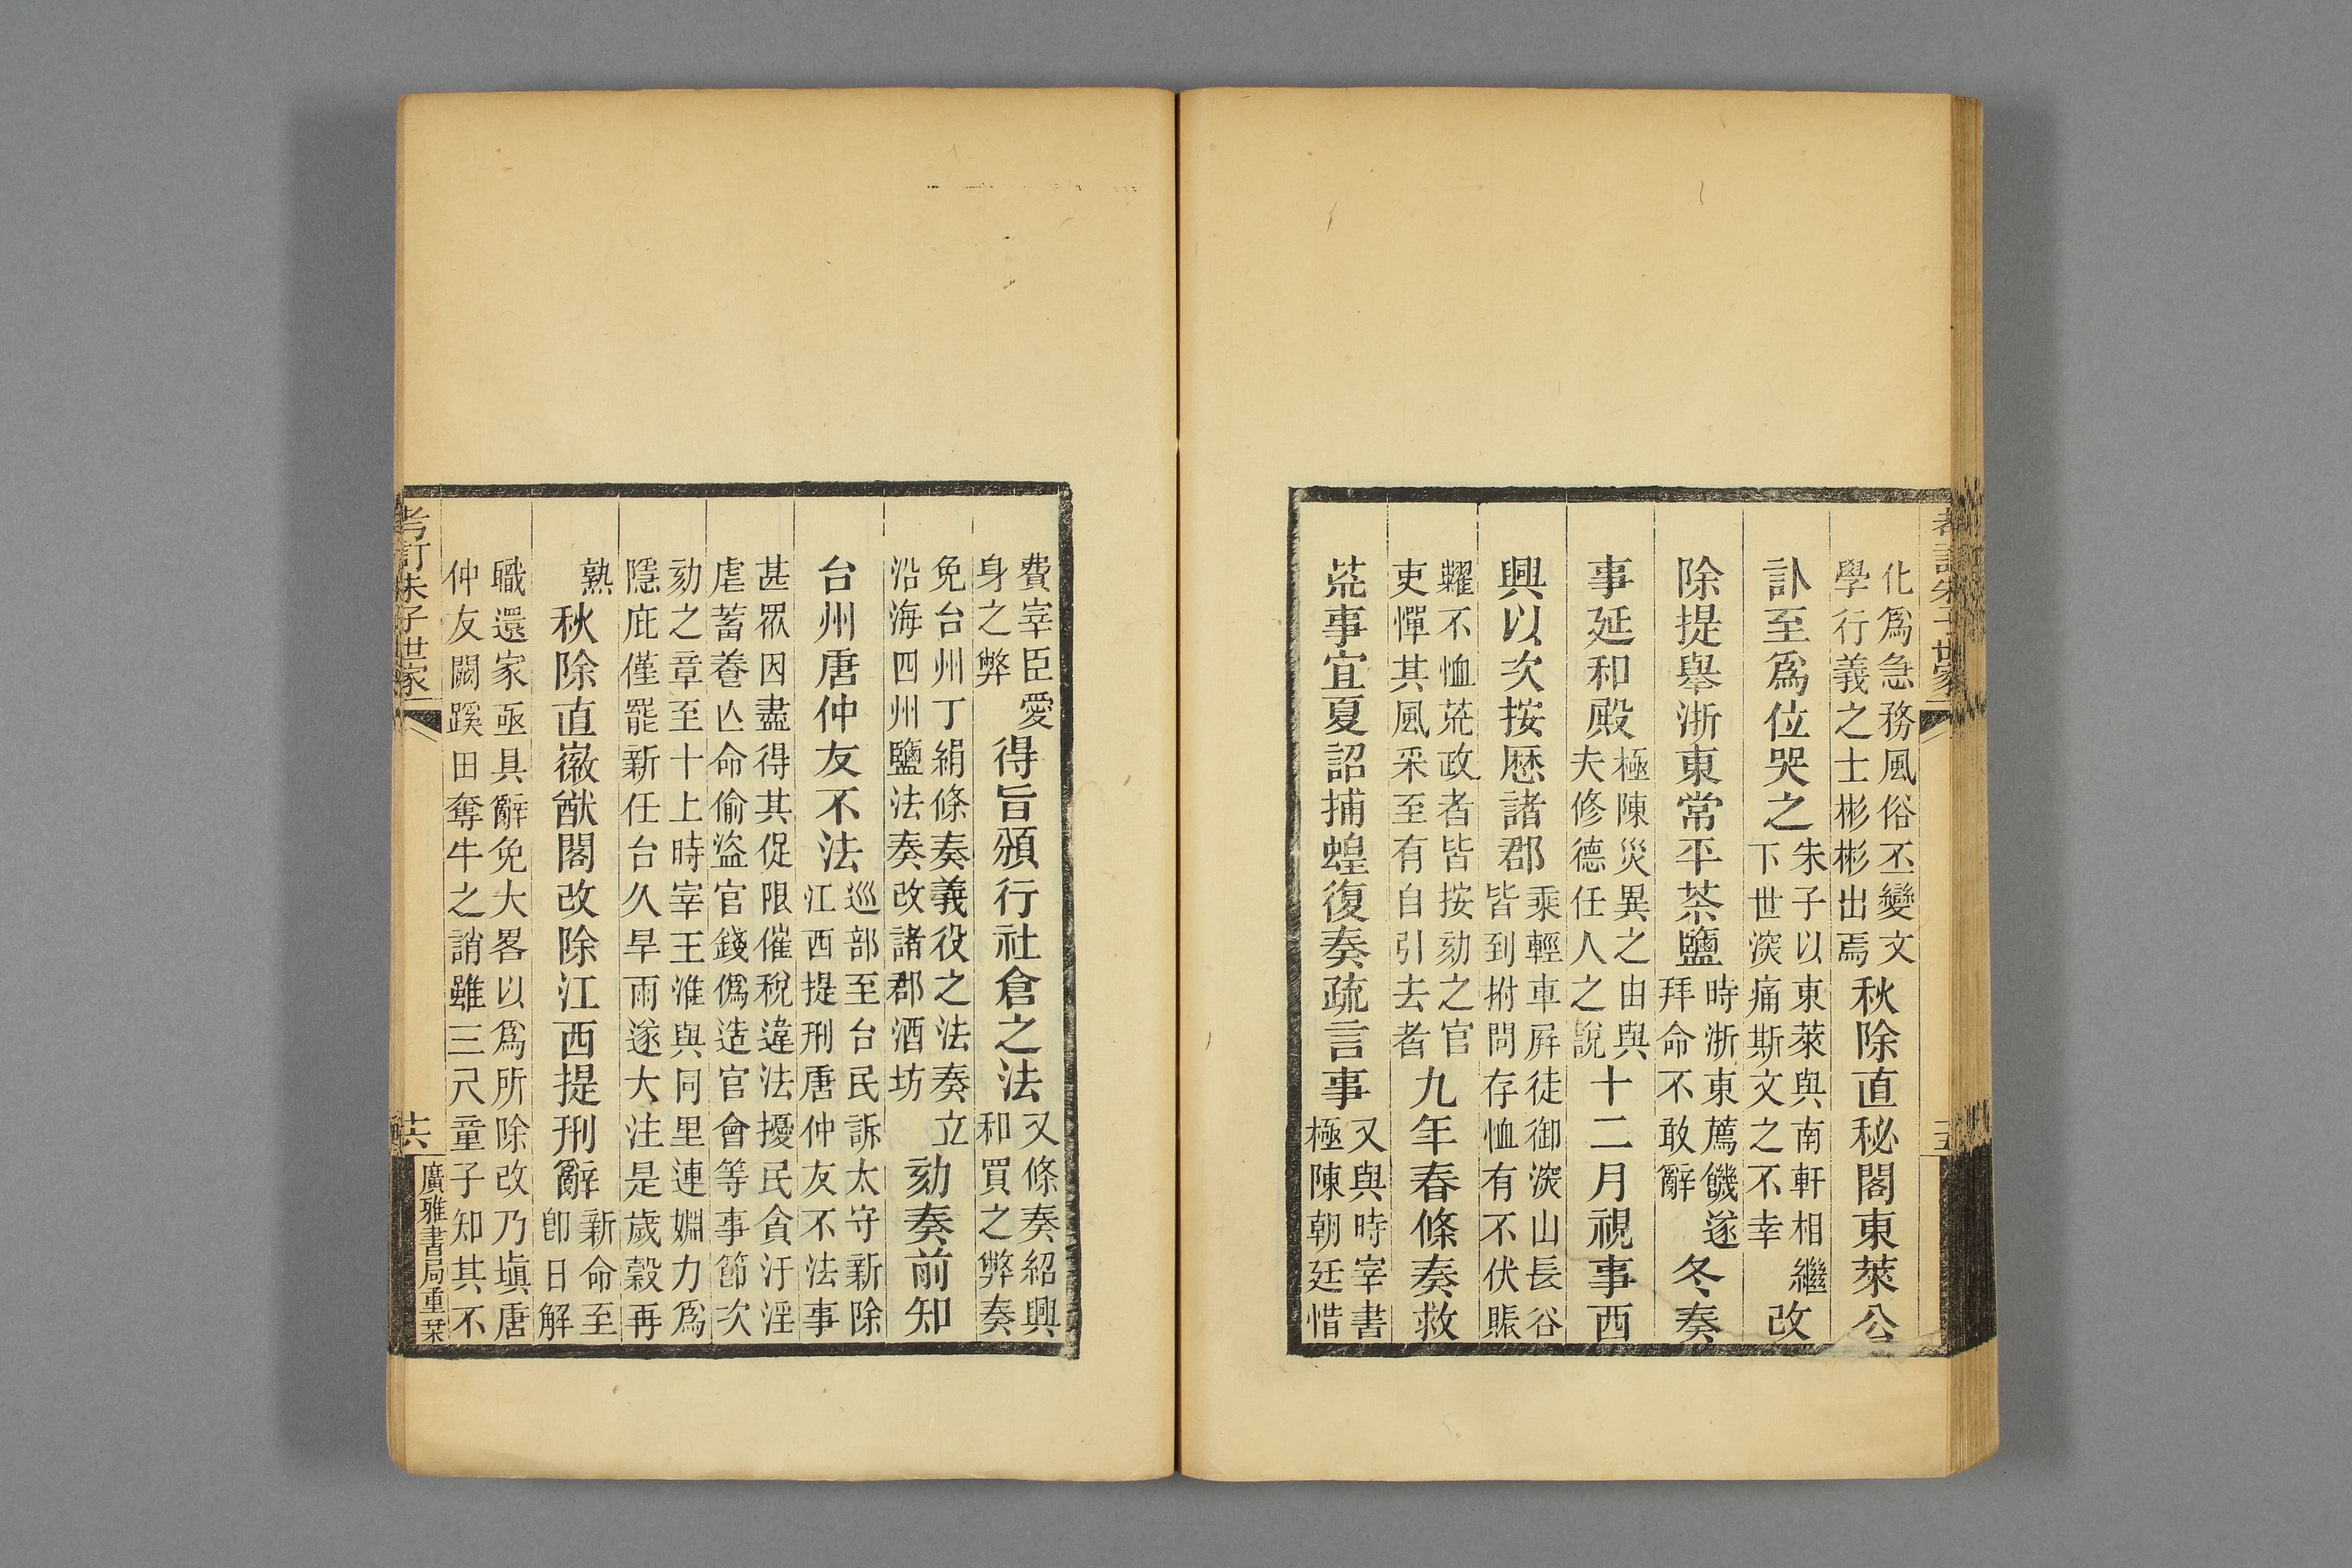 考訂朱子世家
化爲急務風俗丕變文
學行義之士彬彬出焉
秋除直秘閣東萊公
訃至爲位哭之
朱子以東萊與南軒相繼
下世深痛斯文之不幸
改
除提舉浙東常平茶鹽
時浙東薦饑遂
拜命不敢辭
冬奏
事延和殿
極陳災異之由與
夫修德任人之說
十二月視事西
興以次按歷諸郡
乘輕車屏徒御深山長谷
皆到拊問存恤有不伏賑
糶不恤荒政者皆按劾之官
吏憚其風采至有自引去者
九年春條奏救
荒事宜夏詔捕蝗復奏疏言事
又與時宰書
極陳朝廷惜
費宰臣愛
身之弊
得旨頒行社倉之法
又條奏紹興
和買之弊奏
免台州丁絹條奏義役之法奏立
沿海四州鹽法奏改諸郡酒坊
劾奏前知
台州唐仲友不法
巡部至台民訴太守新除
江西提刑唐仲友不法事
甚眾因盡得其促限催稅違法擾民貪汙淫
虐蓄養亡命偷盜官錢僞造官會等事節次
劾之章至十上時宰王淮與同里連姻力爲
隱庇僅罷新任台久旱雨遂大注是歲穀再
熟
秋除直徽猷閣改除江西提刑辭
新命至
即日解
職還家亟具辭免大畧以爲所除改乃塡唐
仲友闕蹊田奪牛之誚雖三尺童子知其不
考訂朱子世家
十六
廣雅書局重栞